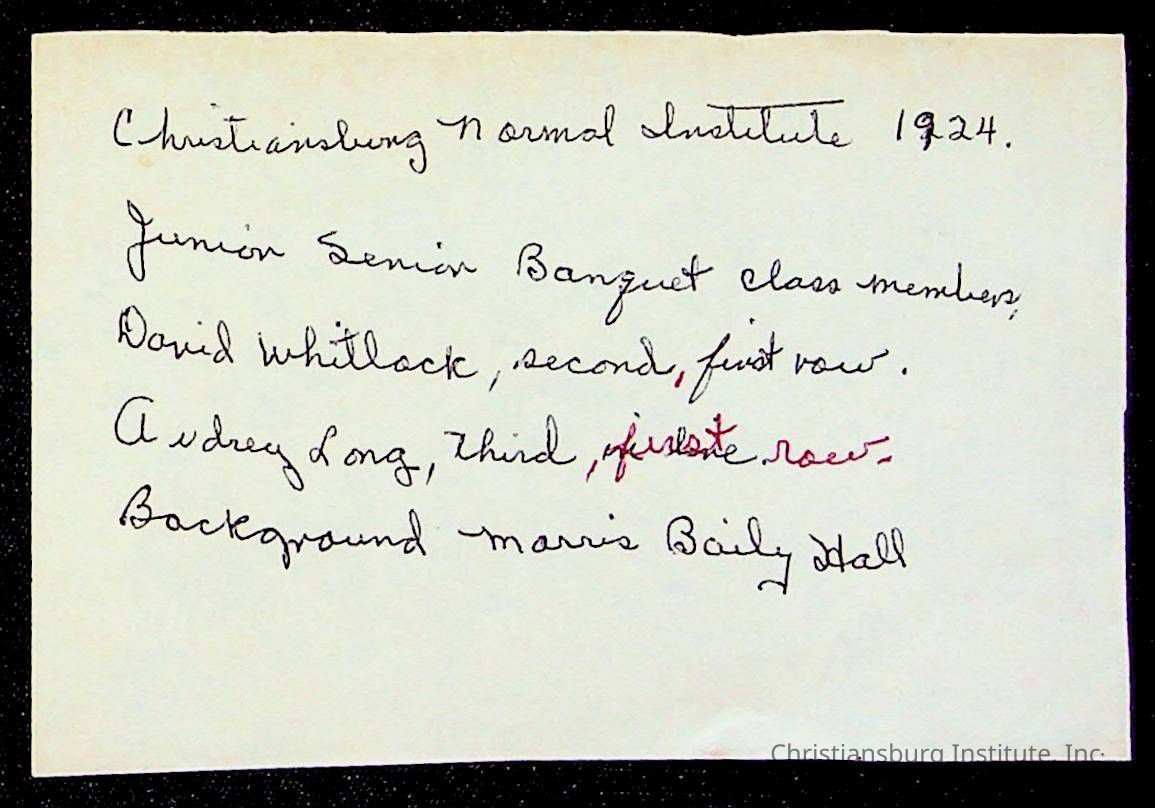 Christiansburg Normal Institute 1924.
Junior Senior Banquet class members,
David Whitlock, second, first row.
Audrey Long, third, first row.
Background Morris Baily Hall
Christiansburg Institute, Inc.